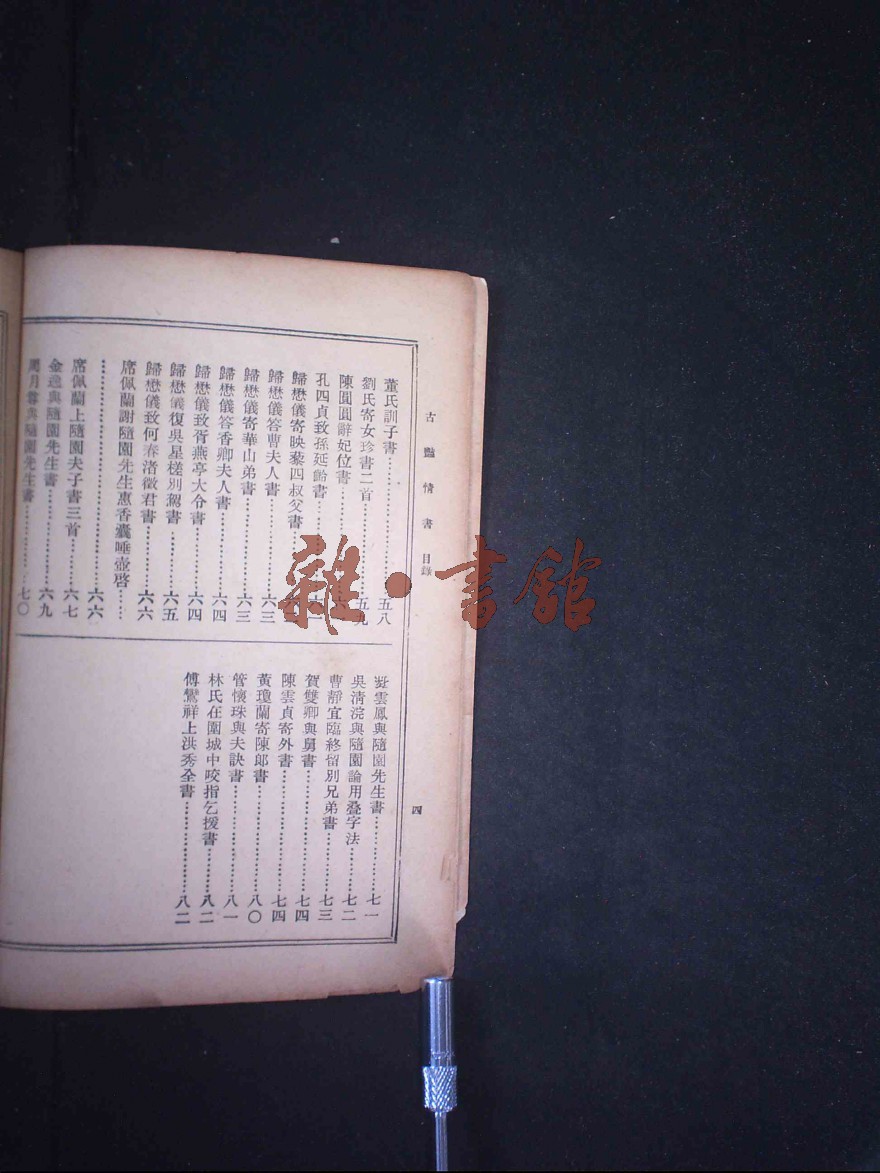 古豔情書 目錄
四
董氏訓子書…………五八
劉氏寄女珍書二首…………五九
陳圓圓辭妃位書…………
孔四貞致孫延齡書…………
歸懋儀寄映藜四叔父書…………
歸懋儀答曹夫人書…………六三
歸懋儀寄華山弟書…………六三
歸懋儀答香卿夫人書…………六四
歸懋儀致胥燕亭大令書…………六四
歸懋儀復吳星槎別駕書…………六五
歸懋儀致何春渚徵君書…………六六
席佩蘭謝隨園先生惠香囊唾壺啓……
…………六六
席佩蘭上隨園夫子書三首…………六七
金逸與隨園先生書…………六九
周月尊與隨園先生書…………七〇
雲鳳與隨園先生書…………七一
吳淸浣與隨園論用叠字法…………七二
曹靜宜臨終留別兄弟書…………七三
賀雙卿與舅書…………七四
陳雲貞寄外書…………七四
黃瓊蘭寄陳郞書…………八〇
管懷珠與夫訣書…………八一
林氏在圍城中咬指乞援書…………八二
傅鸞祥上洪秀全書…………八二
雜·書館